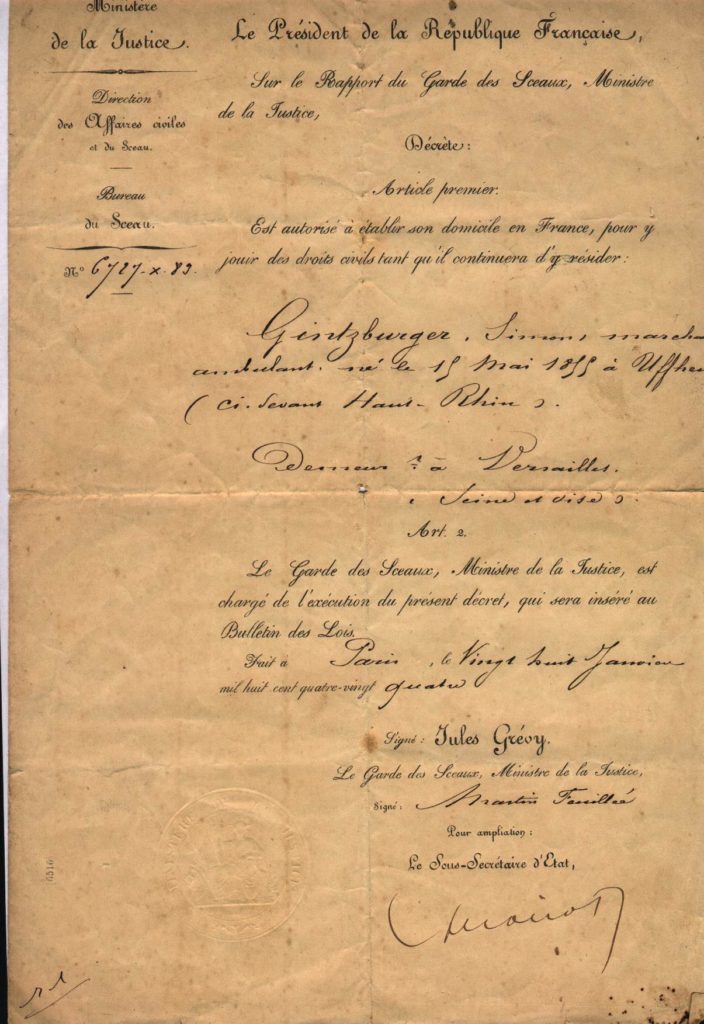 Ministère
de la Justice.
Direction
des Affaires civiles
et du Sceau.
Bureau
du Sceau.
N° 6727-x-83.
Le Président de la République Française,
Sur le Rapport du Garde des Sceaux, Ministre
de la Justice,
Décrète:
Article premier.
Est autorisé à établir son domicile en France, pour y
jouir des droits civils tant qu'il continuera d'y résider:
Gintzburger, Simon, marcha
ambulant. né le 15 Mai 1855 à Uffhe
(ci-devant Haut-Rhin).
Demeur t à Versailles.
(Seine et Oise).
Art. 2.
Le Garde des Sceaux, Ministre de la Justice, est
chargé de l'exécution du présent décret, qui sera inséré au
Bulletin des Lois.
Fait à Paris, le Vingt huit Janvier
mil huit cent quatre-vingt quatre
Signé: Jules Grévy.
Le Garde des Sceaux, Ministre de la Justice,
Signé: Martin Feuillée
Pour ampliation:
Le Sous-Secrétaire d'Etat,
6516